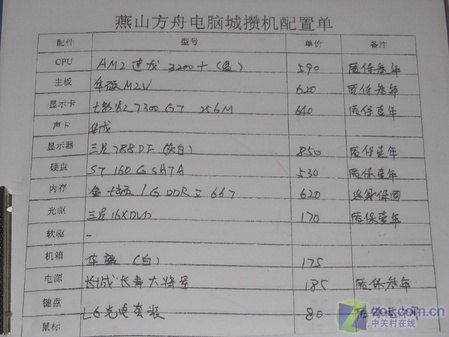 燕山方舟电脑城攒机配置单
配件 型号 单价 备注
CPU AM2 速龙 3200+ (盒) 590 质保叁年
主板 华硕M2V 620 质保叁年
显示卡 七彩虹 7300GT 256M 640 质保壹年
声卡 集成
显示器 三星788DF (灰白) 850 质保壹年
硬盘 ST 160G SATA 530 质保壹年
内存 金士顿 1G DDR II 667 620 终身保固
光驱 三星16XDVD 170 质保壹年
软驱 --
机箱 (白) 175
电源 长城长寿大将军 185 质保叁年
键盘 LG光电套装 80 质保
鼠标
zol.com.cn
中关村在线